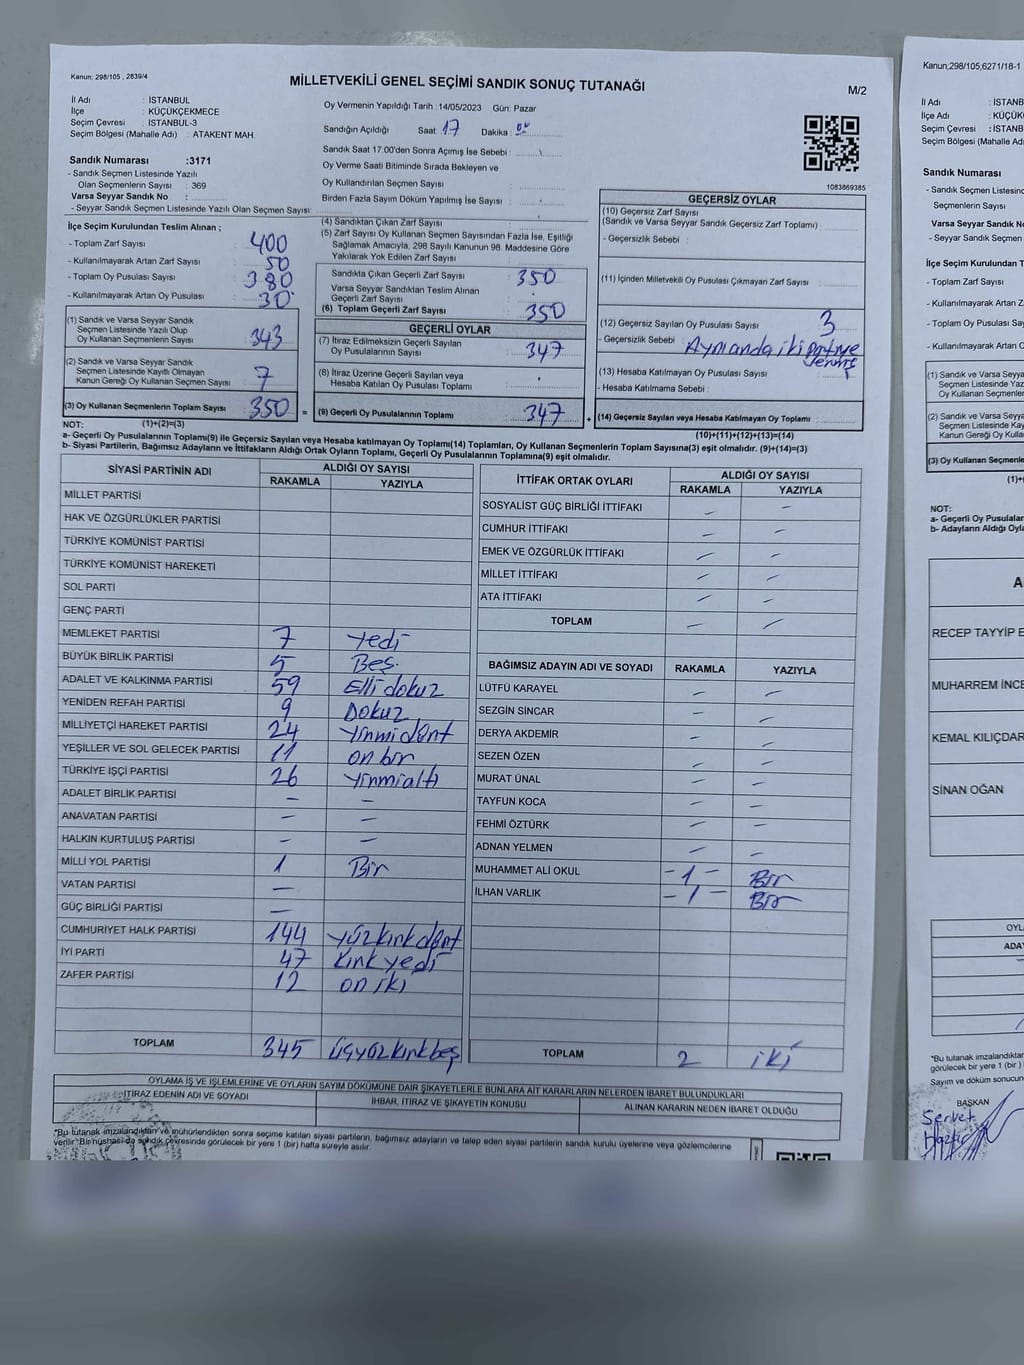 Kanun; 298/105 , 2839/4
MİLLETVEKİLİ GENEL SEÇİMİ SANDIK SONUÇ TUTANAĞI
M/2
İl Adı : İSTANBUL
İlçe : KÜÇÜKÇEKMECE
Seçim Çevresi : İSTANBUL-3
Seçim Bölgesi (Mahalle Adı) : ATAKENT MAH.
Sandık Numarası :3171
- Sandık Seçmen Listesinde Yazılı
Olan Seçmenlerin Sayısı : 369
Varsa Seyyar Sandık No :
- Seyyar Sandık Seçmen Listesinde Yazılı Olan Seçmen Sayısı:
Oy Vermenin Yapıldığı Tarih :14/05/2023 Gün: Pazar
Sandığın Açıldığı Saat: 17 Dakika : 00
Sandık Saat 17:00'den Sonra Açımış İse Sebebi :
Oy Verme Saati Bitiminde Sırada Bekleyen ve
Oy Kullandırılan Seçmen Sayısı :
Birden Fazla Sayım Döküm Yapılmış İse Sayısı :
1083869385
İlçe Seçim Kurulundan Teslim Alınan ;
- Toplam Zarf Sayısı : 400
- Kullanılmayarak Artan Zarf Sayısı : 50
- Toplam Oy Pusulası Sayısı : 380
- Kullanılmayarak Artan Oy Pusulası : 30
(1) Sandık ve Varsa Seyyar Sandık
Seçmen Listesinde Yazılı Olup
Oy Kullanan Seçmenlerin Sayısı : 343
(2) Sandık ve Varsa Seyyar Sandık
Seçmen Listesinde Kayıtlı Olmayan
Kanun Gereği Oy Kullanan Seçmen Sayısı : 7
(3) Oy Kullanan Seçmenlerin Toplam Sayısı : 350 =
(1)+(2)=(3)
(4) Sandıktan Çıkan Zarf Sayısı :
(5) Zarf Sayısı Oy Kullanan Seçmen Sayısından Fazla İse, Eşitliği
Sağlamak Amacıyla, 298 Sayılı Kanunun 98. Maddesine Göre
Yakılarak Yok Edilen Zarf Sayısı :
Sandıkta Çıkan Geçerli Zarf Sayısı : 350
Varsa Seyyar Sandıktan Teslim Alınan
Geçerli Zarf Sayısı :
(6) Toplam Geçerli Zarf Sayısı : 350
GEÇERLİ OYLAR
(7) İtiraz Edilmeksizin Geçerli Sayılan
Oy Pusulalarının Sayısı : 347
(8) İtiraz Üzerine Geçerli Sayılan veya
Hesaba Katılan Oy Pusulası Toplamı :
(9) Geçerli Oy Pusulalarının Toplamı : 347 +
GEÇERSİZ OYLAR
(10) Geçersiz Zarf Sayısı
(Sandık ve Varsa Seyyar Sandık Geçersiz Zarf Toplamı) :
- Geçersizlik Sebebi :
(11) İçinden Milletvekili Oy Pusulası Çıkmayan Zarf Sayısı:
(12) Geçersiz Sayılan Oy Pusulası Sayısı : 3
- Geçersizlik Sebebi : Aynı anda iki partiye
(13) Hesaba Katılmayan Oy Pusulası Sayısı :
- Hesaba Katılmama Sebebi :
(14) Geçersiz Sayılan veya Hesaba Katılmayan Oy Toplamı :
(10)+(11)+(12)+(13)=(14)
NOT:
a- Geçerli Oy Pusulalarının Toplamı(9) ile Geçersiz Sayılan veya Hesaba katılmayan Oy Toplamı(14) Toplamları, Oy Kullanan Seçmenlerin Toplam Sayısına(3) eşit olmalıdır. (9)+(14)=(3)
b- Siyasi Partilerin, Bağımsız Adayların ve İttifakların Aldığı Ortak Oyların Toplamı, Geçerli Oy Pusulalarının Toplamına(9) eşit olmalıdır.
SİYASİ PARTİNİN ADI ALDIĞI OY SAYISI
RAKAMLA YAZIYLA
MİLLET PARTİSİ
HAK VE ÖZGÜRLÜKLER PARTİSİ
TÜRKİYE KOMÜNİST PARTİSİ
TÜRKİYE KOMÜNİST HAREKETİ
SOL PARTİ
GENÇ PARTİ
MEMLEKET PARTİSİ 7 Yedi
BÜYÜK BİRLİK PARTİSİ 5 Beş
ADALET VE KALKINMA PARTİSİ 59 Elli dokuz
YENİDEN REFAH PARTİSİ 9 Dokuz
MİLLİYETÇİ HAREKET PARTİSİ 24 Yirmidört
YEŞİLLER VE SOL GELECEK PARTİSİ 11 on bir
TÜRKİYE İŞÇİ PARTİSİ 26 Yirmialtı
ADALET BİRLİK PARTİSİ – –
ANAVATAN PARTİSİ – –
HALKIN KURTULUŞ PARTİSİ – –
MİLLİ YOL PARTİSİ 1 Bir
VATAN PARTİSİ –
GÜÇ BİRLİĞİ PARTİSİ –
CUMHURİYET HALK PARTİSİ 144 Yüzkırkdört
İYİ PARTİ 47 Kırkyedi
ZAFER PARTİSİ 12 on iki
TOPLAM 345 üçyüzkırkbeş
İTTİFAK ORTAK OYLARI ALDIĞI OY SAYISI
RAKAMLA YAZIYLA
SOSYALİST GÜÇ BİRLİĞİ İTTİFAKI – –
CUMHUR İTTİFAKI – –
EMEK VE ÖZGÜRLÜK İTTİFAKI – –
MİLLET İTTİFAKI – –
ATA İTTİFAKI – –
TOPLAM – –
BAĞIMSIZ ADAYIN ADI VE SOYADI RAKAMLA YAZIYLA
LÜTFÜ KARAYEL – –
SEZGİN SİNCAR – –
DERYA AKDEMİR – –
SEZEN ÖZEN – –
MURAT ÜNAL – –
TAYFUN KOCA – –
FEHMİ ÖZTÜRK – –
ADNAN YELMEN – –
MUHAMMET ALİ OKUL –1– Bir
İLHAN VARLIK –1– Bir
TOPLAM 2 iki
OYLAMA İŞ VE İŞLEMLERİNE VE OYLARIN SAYIM DÖKÜMÜNE DAİR ŞİKAYETLERLE BUNLARA AİT KARARLARIN NELERDEN İBARET BULUNDUKLARI
İTİRAZ EDENİN ADI VE SOYADI
İHBAR, İTİRAZ VE ŞİKAYETİN KONUSU
ALINAN KARARIN NEDEN İBARET OLDUĞU
"Bu tutanak imzalandıktan ve mühürlendikten sonra seçime katılan siyasi partilerin, bağımsız adayların ve talep eden siyasi partilerin sandık kurulu üyelerine veya gözlemcilerine
verilir."Bir nüshası da sandık çevresinde görülecek bir yere 1 (bir) hafta süreyle asılır.
Kanun;298/105;6271/18-1
İl Adı : İSTAN
İlçe Adı : KÜÇÜK
Seçim Çevresi : İSTANB
Seçim Bölgesi (Mahalle Adı
Sandık Numarası
- Sandık Seçmen Listesinde
Seçmenlerin Sayısı
Varsa Seyyar Sandık N
- Seyyar Sandık Seçmen
İlçe Seçim Kurulundan T
- Toplam Zarf Sayısı
- Kullanılmayarak Artan Z
- Toplam Oy Pusulası Say
- Kullanılmayarak Artan O
(1) Sandık ve Varsa Seyya
Seçmen Listesinde Yaz
Oy Kullanan Seçmenle
(2) Sandık ve Varsa Seyya
Seçmen Listesinde Kay
Kanun Gereği Oy Kullan
(3) Oy Kullanan Seçmenle
(1)+
NOT:
a- Geçerli Oy Pusulalar
b- Adayların Aldığı Oyla
A
RECEP TAYYİP E
MUHARREM İNCE
KEMAL KILIÇDAR
SİNAN OĞAN
OYL
ADA
"Bu tutanak imzalandıktan
görülecek bir yere 1 (bir )
Sayım ve döküm sonucun
BAŞKAN
Servet